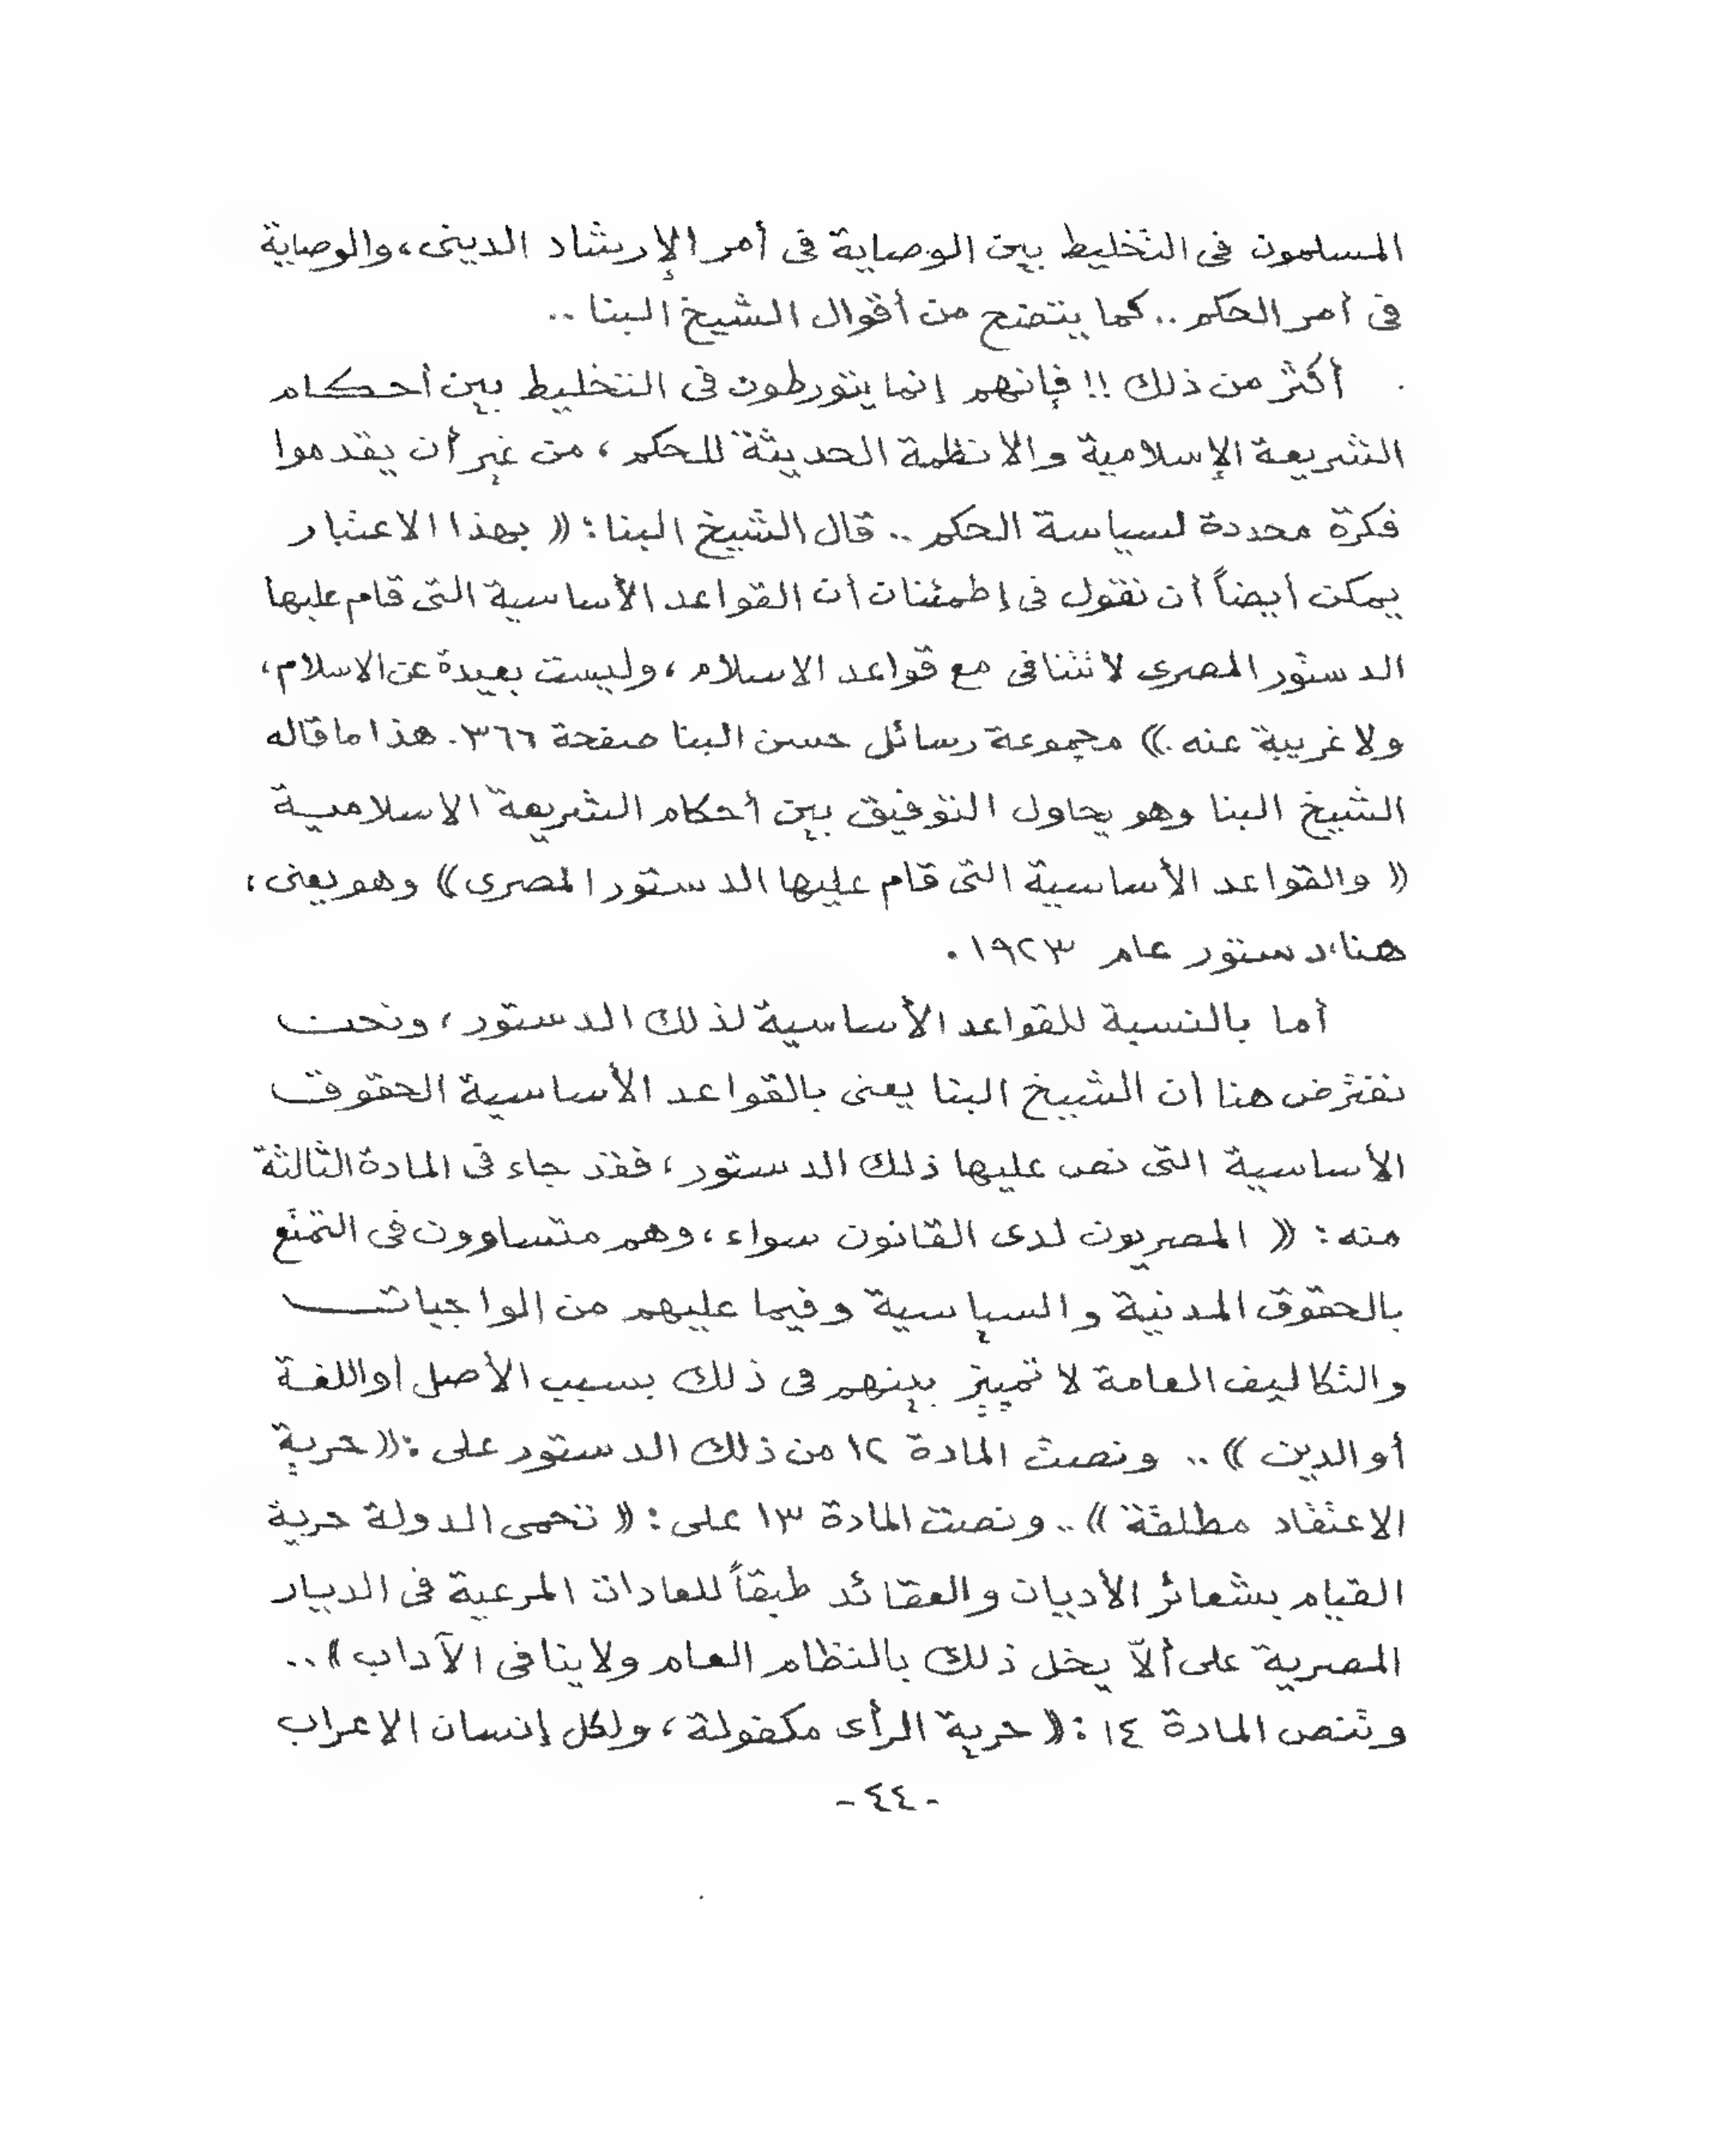 المسلمون فى التخليط بين الوصاية فى أمر الإرشاد الدينى، والوصاية
فى أمر الحكم .. كما يتضح من أقوال الشيخ البنا ..
أكثر من ذلك !! فإنهم إنما يتورطون فى التخليط بين أحكام
الشريعة الإسلامية والانظمة الحديثة للحكم ، من غير أن يقدموا
فكرة محددة لسياسة الحكم .. قال الشيخ البنا : (( بهذا الاعتبار
يمكن أيضاً أن نقول فى إطمئنان أن القواعد الأساسية التى قام عليها
الدستور المصرى لا تتنافى مع قواعد الاسلام ، وليست بعيدة عن الاسلام ،
ولا غريبة عنه .)) مجموعة رسائل حسن البنا صفحة ٣٦٦. هذا ما قاله
الشيخ البنا وهو يحاول التوفيق بين أحكام الشريعة الاسلامية
(( والقواعد الأساسية التى قام عليها الدستور المصرى )) وهو يعنى ،
هنا، دستور عام ١٩٢٣ .
أما بالنسبة للقواعد الأساسية لذلك الدستور ، ونحن
نفترض هنا ان الشيخ البنا يعنى بالقواعد الأساسية الحقوق
الأساسية التى نص عليها ذلك الدستور ، فقد جاء فى المادة الثالثة
منه : (( المصريون لدى القانون سواء ، وهم متساوون فى التمتع
بالحقوق المدنية والسياسية وفيما عليهم من الواجبات
والتكاليف العامة لا تمييز بينهم فى ذلك بسبب الأصل او اللغة
أو الدين )) .. ونصت المادة ١٢ من ذلك الدستور على : (( حرية
الاعتقاد مطلقة )) .. ونصت المادة ١٣ على : (( تحمى الدولة حرية
القيام بشعائر الأديان والعقائد طبقاً للعادات المرعية فى الديار
المصرية على ألاّ يخل ذلك بالنظام العام ولا ينافى الآداب )) ..
وتنص المادة ١٤ : (( حرية الرأى مكفولة ، ولكل إنسان الاعراب
- ٤٤ -